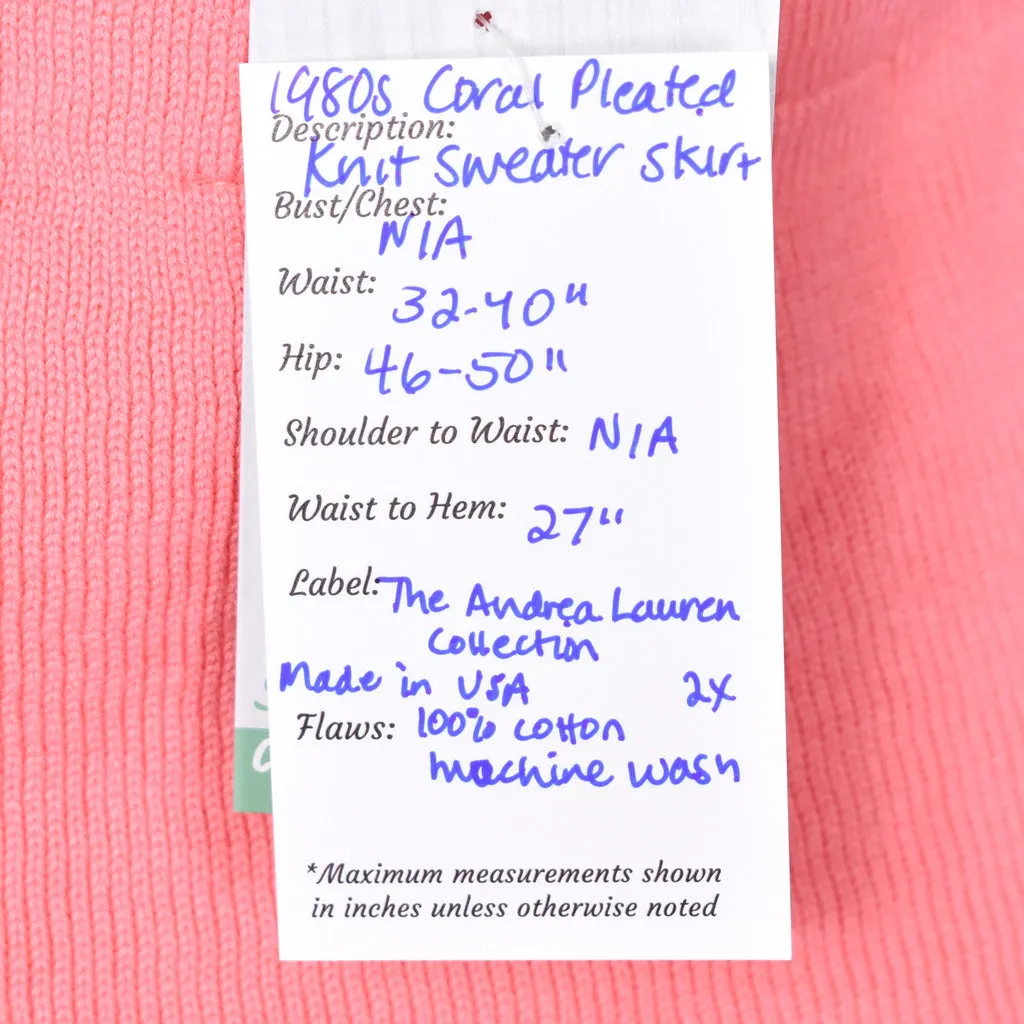 1980s Coral Pleated
Description:
Knit Sweater Skirt
Bust/Chest:
N/A
Waist: 32-40"
Hip: 46-50"
Shoulder to Waist: N/A
Waist to Hem: 27"
Label: The Andrea Lauren
Collection
Made in USA 2X
Flaws: 100% cotton
machine wash
*Maximum measurements shown
in inches unless otherwise noted